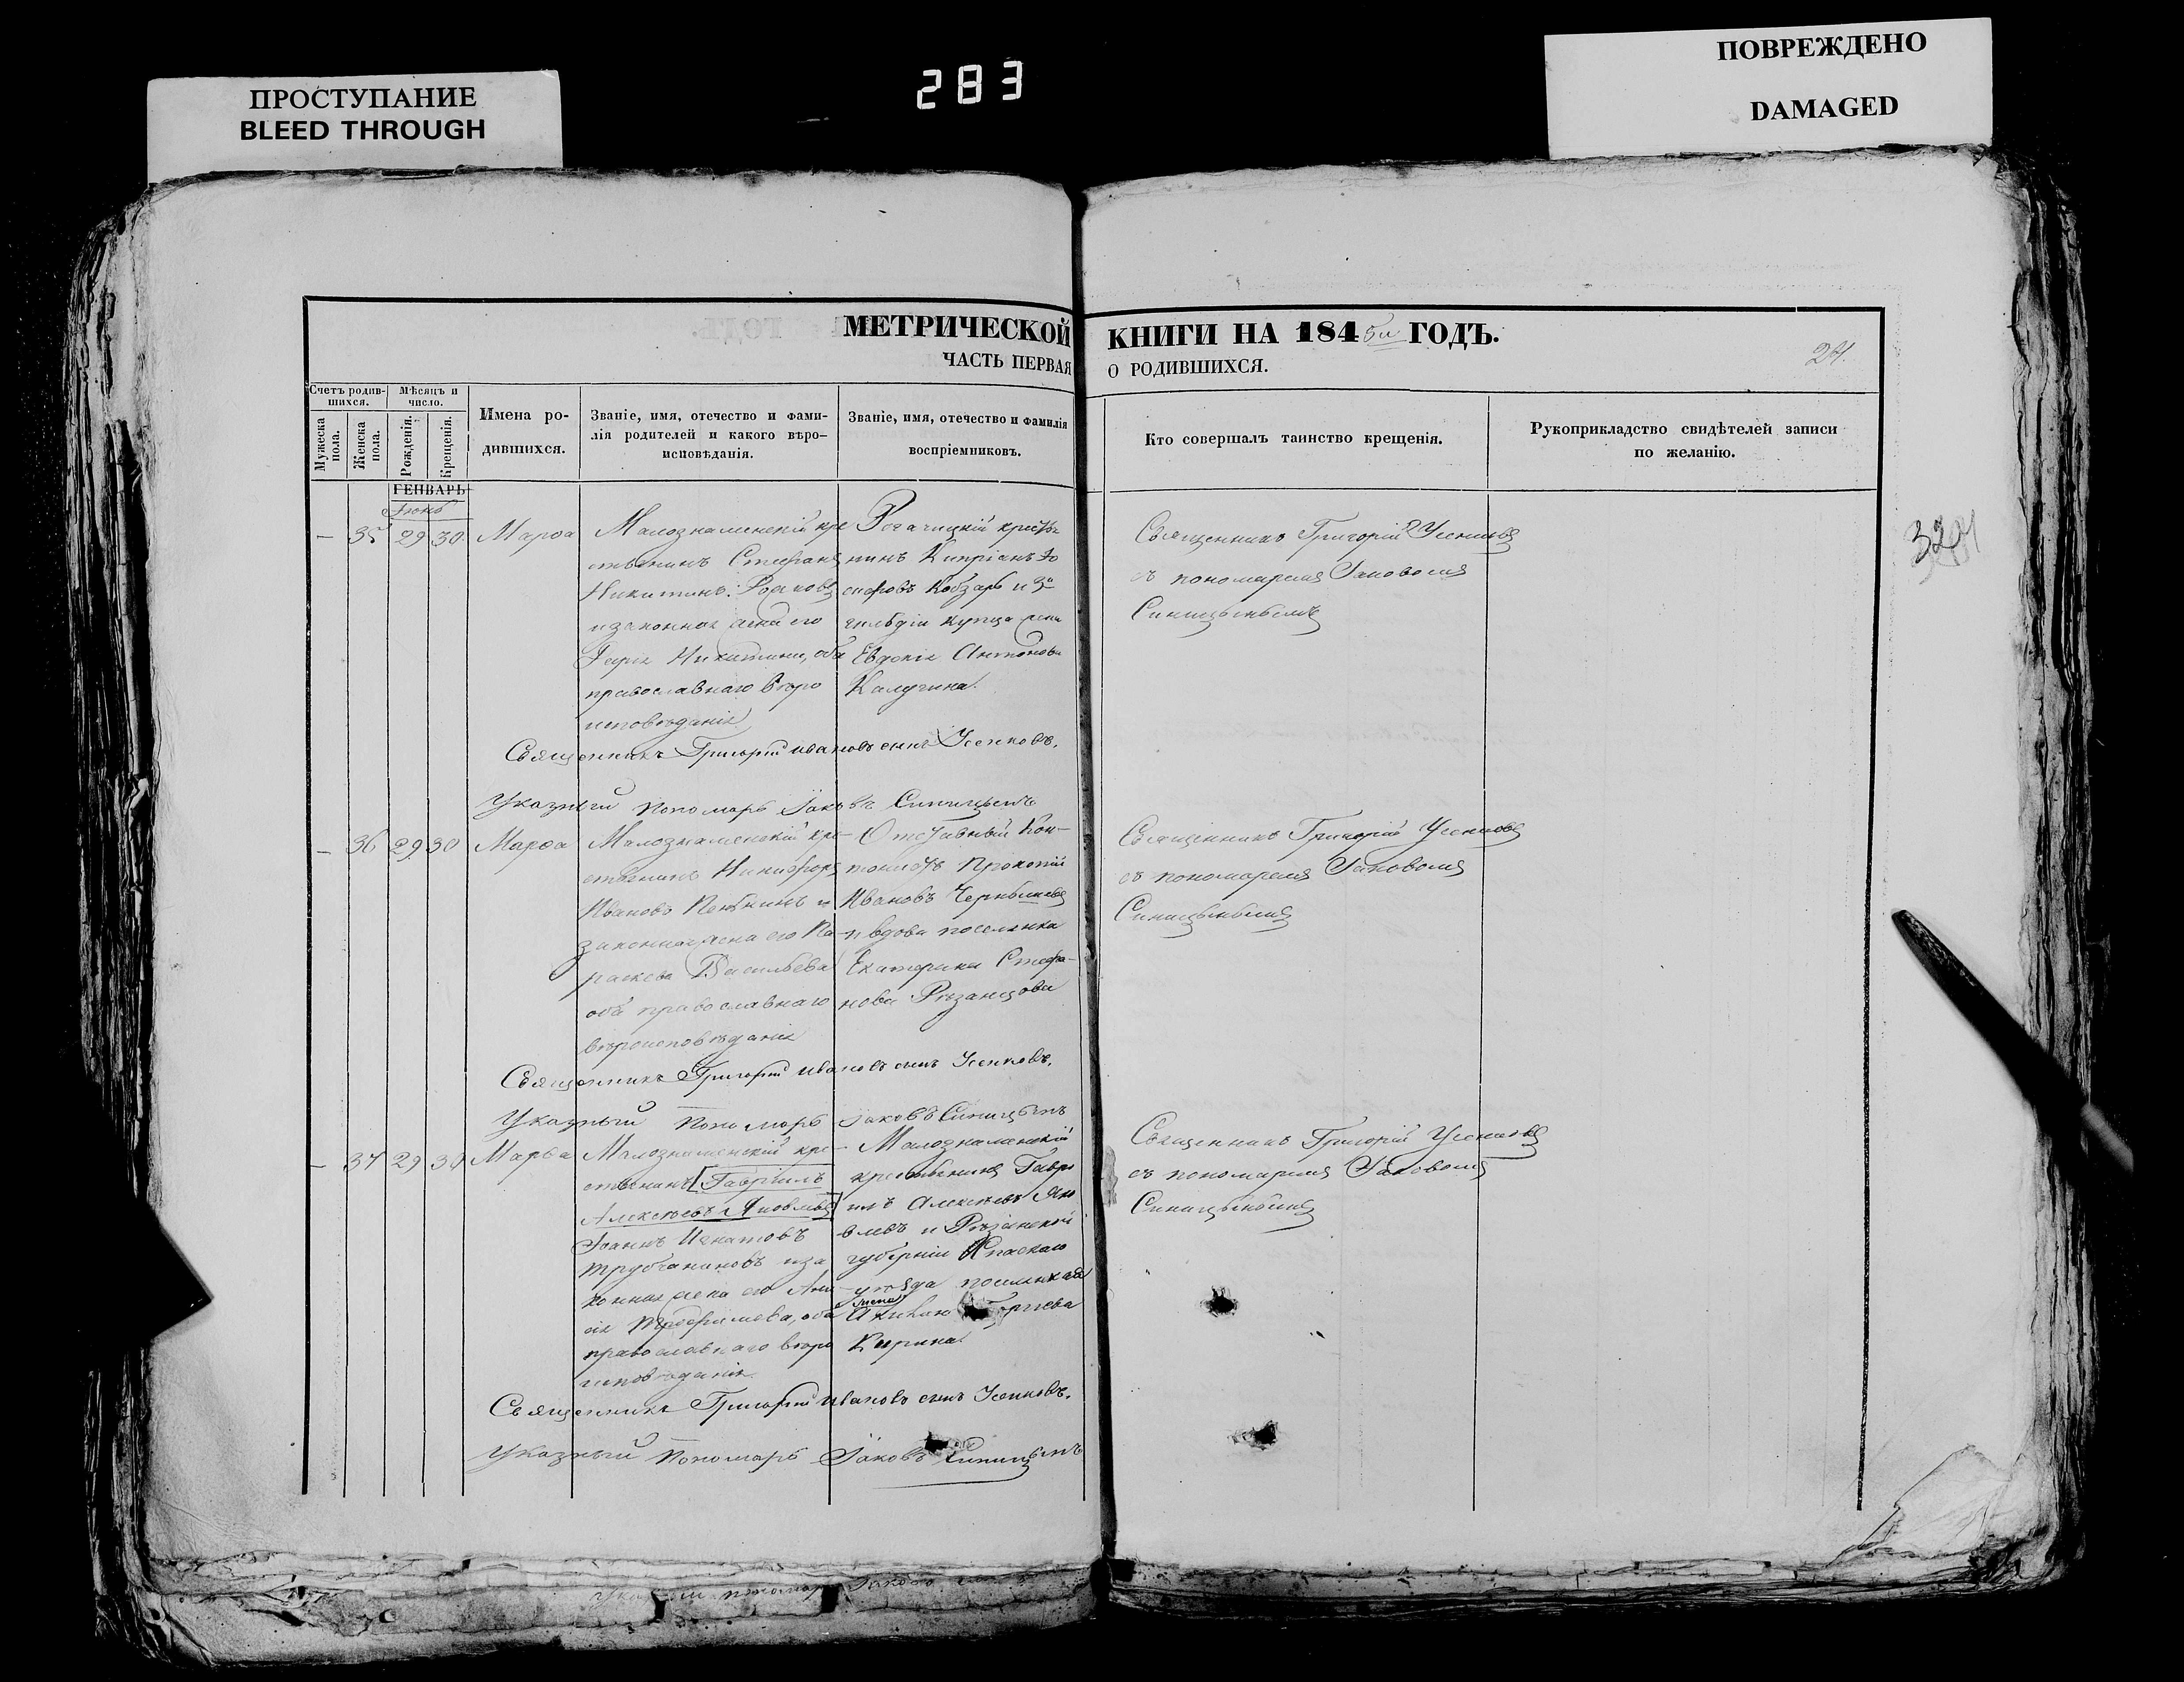 ПРОСТУПАНИЕ
BLEED THROUGH
283
ПОВРЕЖДЕНО
DAMAGED
МЕТРИЧЕСКОЙ КНИГИ НА 1845й ГОДЪ.
ЧАСТЬ ПЕРВАЯ О РОДИВШИХСЯ.
24.
Счетъ родив-
шихся.
Мѣсяцъ и
число.
Мужеска
пола.
Женска
пола.
Рожденія.
Крещенія.
Имена ро-
дившихся.
Званіе, имя, отечество и фами-
лія родителей и какого вѣро-
исповѣданія.
Званіе, имя, отечество и фамилія
воспріемниковъ.
Кто совершалъ таинство крещенія.
Рукоприкладство свидѣтелей записи
по желанію.
ГЕНВАРЬ
Іюнь
— 35 29 30. Марѳа
Малознаменскій кре
стьянинъ Стефанъ
Никитинъ
и законная жена его
Никитина, оба
православнаго вѣро
исповѣданія
Рогачицкій крестья
нинъ Кипріанъ Іо
сифовъ Кобзарь и 3й
гильдіи купца жена
Евдокія Антонова
Калугина.
Священникъ Григорій Усенковъ
съ пономаремъ Іаковомъ
Синицынымъ
Священникъ Григорій Ивановъ сынъ Усенковъ.
Указный пономарь Іаковъ Синицынъ
— 36 29 30 Марѳа
Малознаменскій кре-
стьянинъ Никифоръ
Ивановъ и
законная жена его Па-
раскева Васильева
оба православнаго
вѣроисповѣданія
Отставный Кон-
Прокопій
Ивановъ
и вдова поселянка
Екатерина Стефа-
нова Рязанцова
Священникъ Григорій Усенковъ
съ пономаремъ Іаковомъ
Синицынымъ
Священникъ Григорій Ивановъ сынъ Усенковъ.
Указный пономарь Іаковъ Синицынъ
— 37 29 30 Марѳа
Малознаменскій кре-
стьянинъ [Гавріилъ
Алексѣевъ Яковлевъ]
Іоаннъ Игнатовъ
Трубчаниновъ и за
конная жена его
оба
православнаго вѣро
исповѣданія.
Малознаменскій
крестьянинъ Гаврі
илъ Алексѣевъ Яко
влевъ и Рязанской
губерніи
уѣзда поселянка
жена
Кирина.
Священникъ Григорій Усенковъ
съ пономаремъ Іаковомъ
Синицынымъ
Священникъ Григорій Ивановъ сынъ Усенковъ.
Указный пономарь Іаковъ Синицынъ